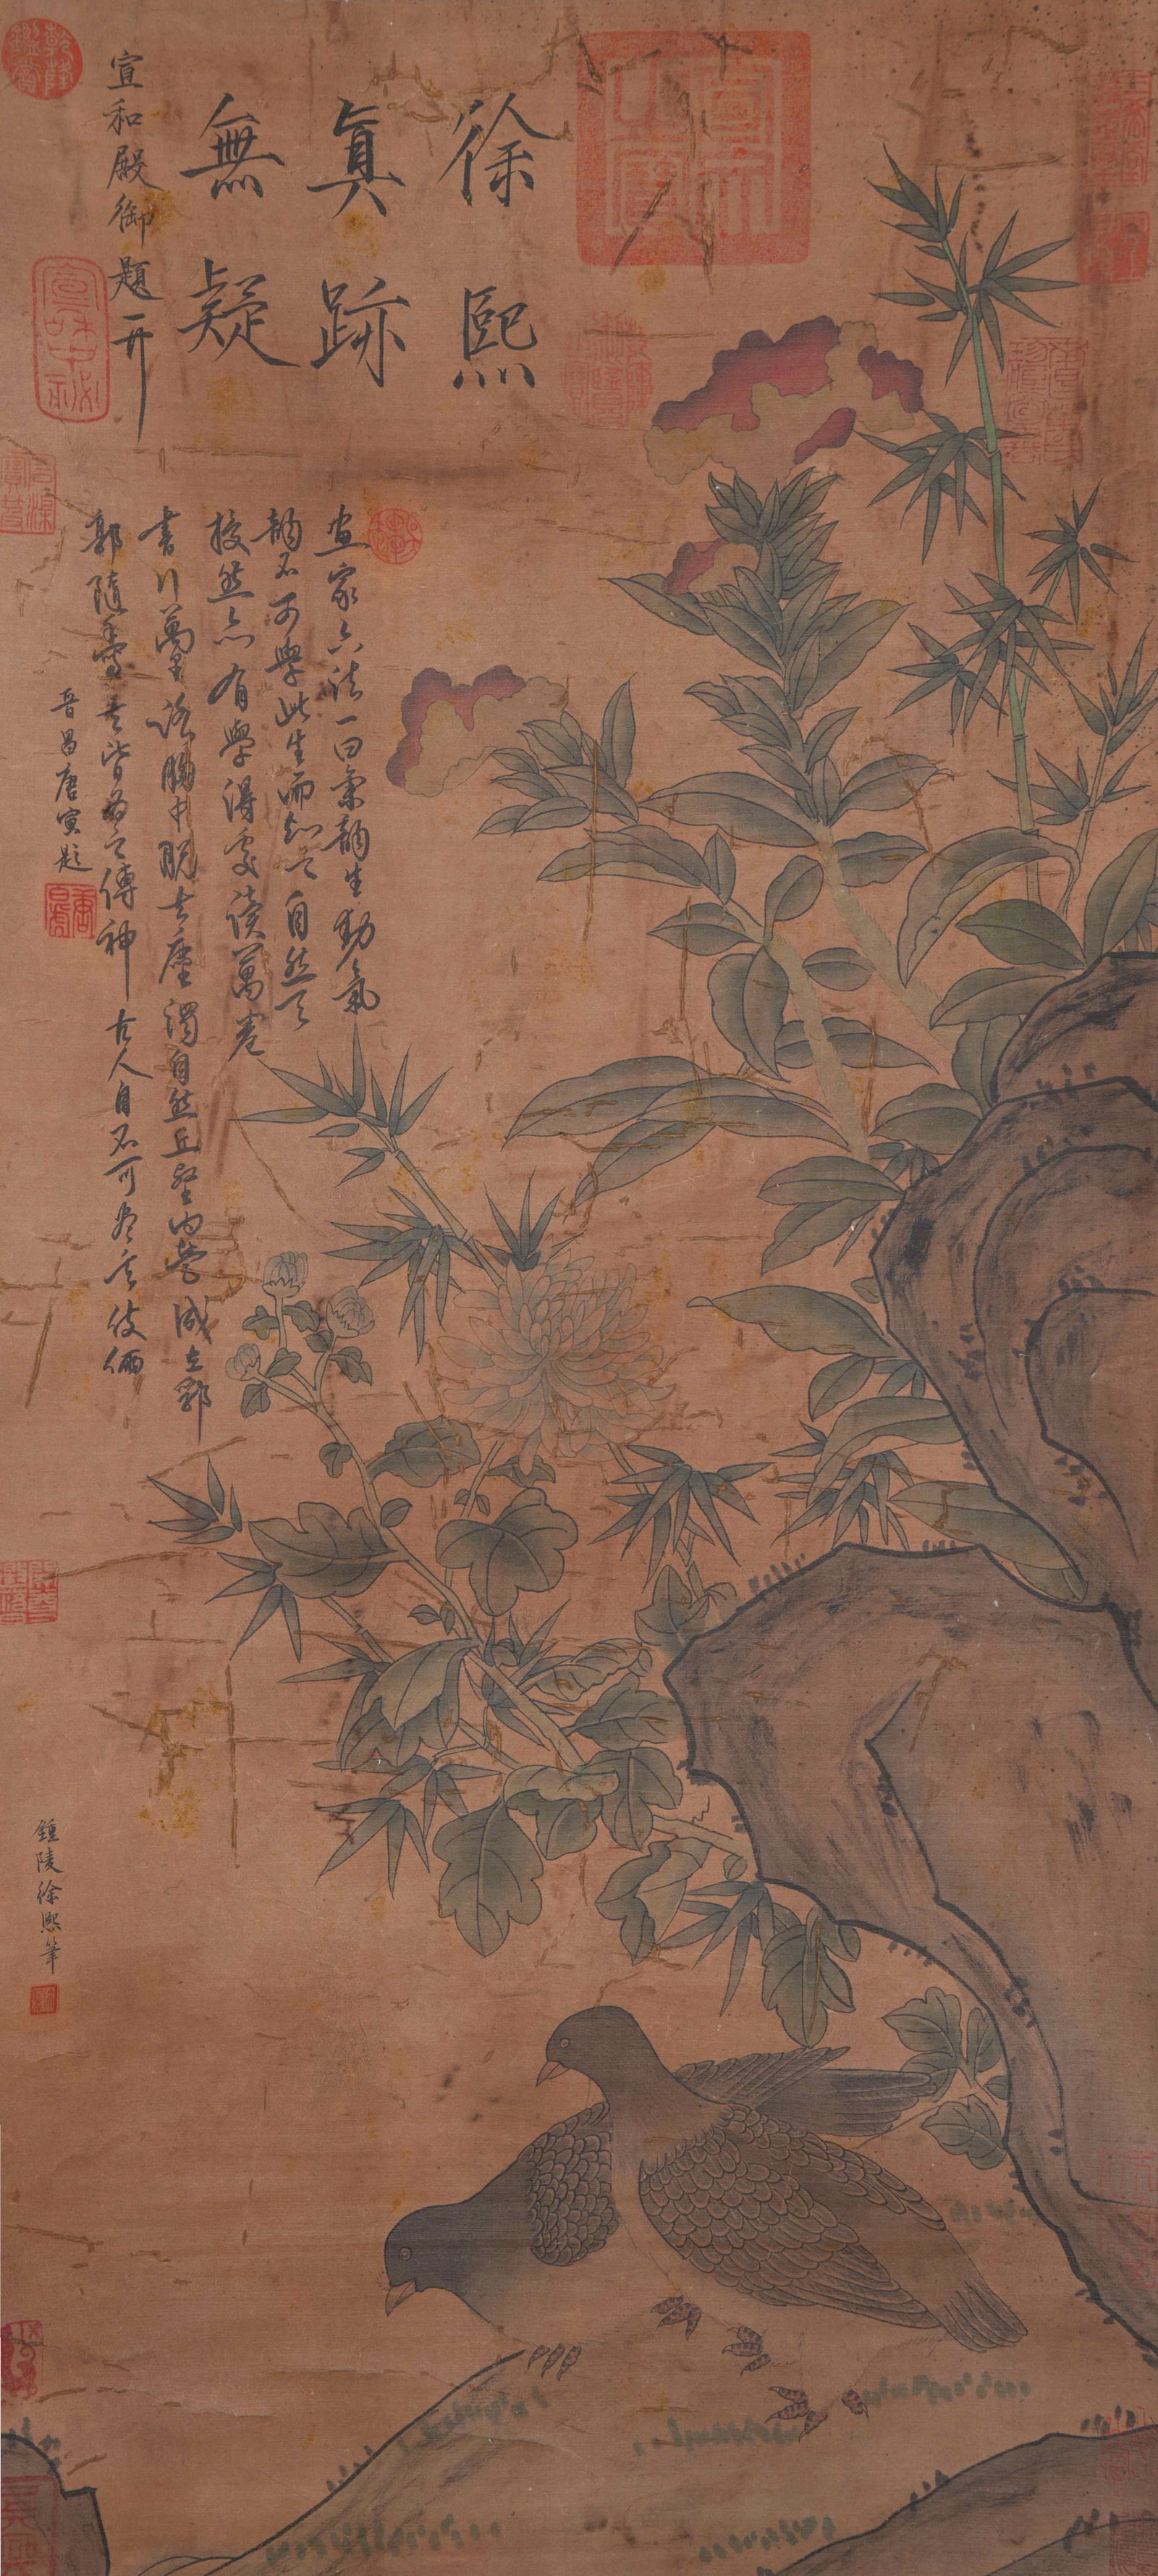 徐熙
真跡
無疑
宣和殿御題
畫家六法一曰氣韻生動氣
韻不可學此生而知之自然天
授然亦有學得處讀萬卷
書行萬里路胸中脫去塵濁自然丘壑內營成立鄞
鄂隨手寫去皆為之傳神古人自不可盡其伎倆
晉昌唐寅題
鍾陵徐熙筆
乾隆鑑賞
宣和中秘
石渠寶笈